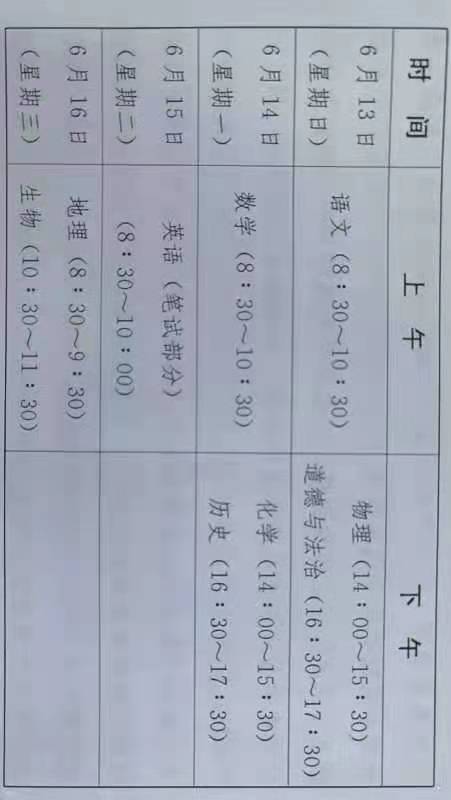 时间 上午 下午
6月13日
（星期日）
语文（8：30～10：30）
物理（14：00～15：30）
道德与法治（16：30～17：30）
6月14日
（星期一）
数学（8：30～10：30）
化学（14：00～15：30）
历史（16：30～17：30）
6月15日
（星期二）
英语（笔试部分）
（8：30～10：00）
6月16日
（星期三）
地理（8：30～9：30）
生物（10：30～11：30）